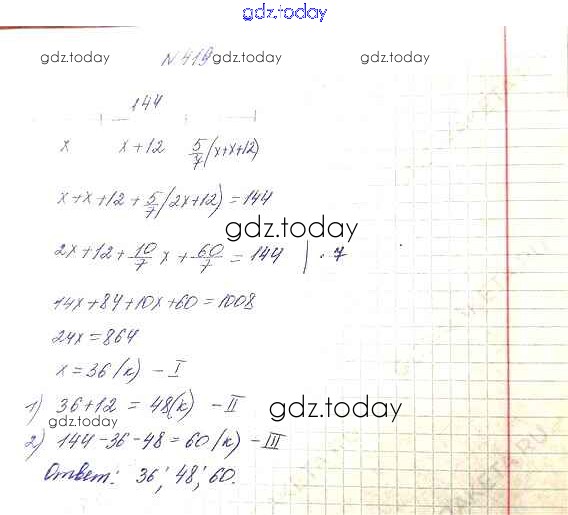 gdz.today
gdz.today № 419 gdz.today gdz.today
144
x x+12 5/7(x+x+12)
x+x+12+5/7(2x+12)=144
gdz.today
2x+12+10/7x+60/7=144 | · 7
14x+84+10x+60=1008
24x=864
x=36(к) - I
1) 36+12=48(к) - II
gdz.today
gdz.today
2) 144-36-48=60(к) - III
Ответ: 36; 48; 60.